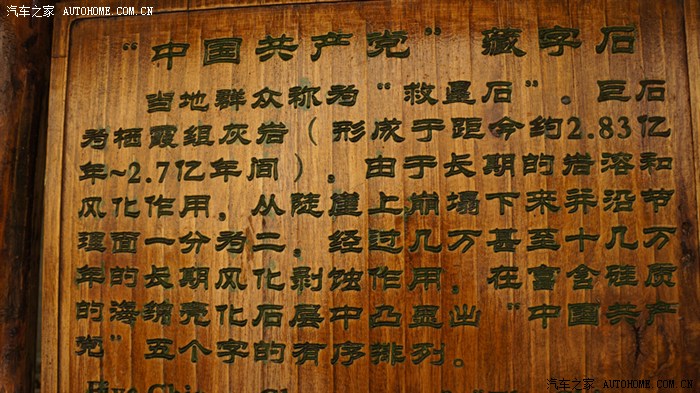 汽车之家 AUTOHOME.COM.CN
“中国共产党”藏字石
当地群众称为“救星石”。巨石
为栖霞组灰岩（形成于距今约2.83亿
年~2.7亿年间），由于长期的岩溶和
风化作用，从陡崖上崩塌下来并沿节
理面一分为二，经过几万甚至十几万
年的长期风化剥蚀作用，在富含硅质
的海绵壳化石层中凸显出“中国共产
党”五个字的有序排列。
汽车之家 AUTOHOME.COM.CN